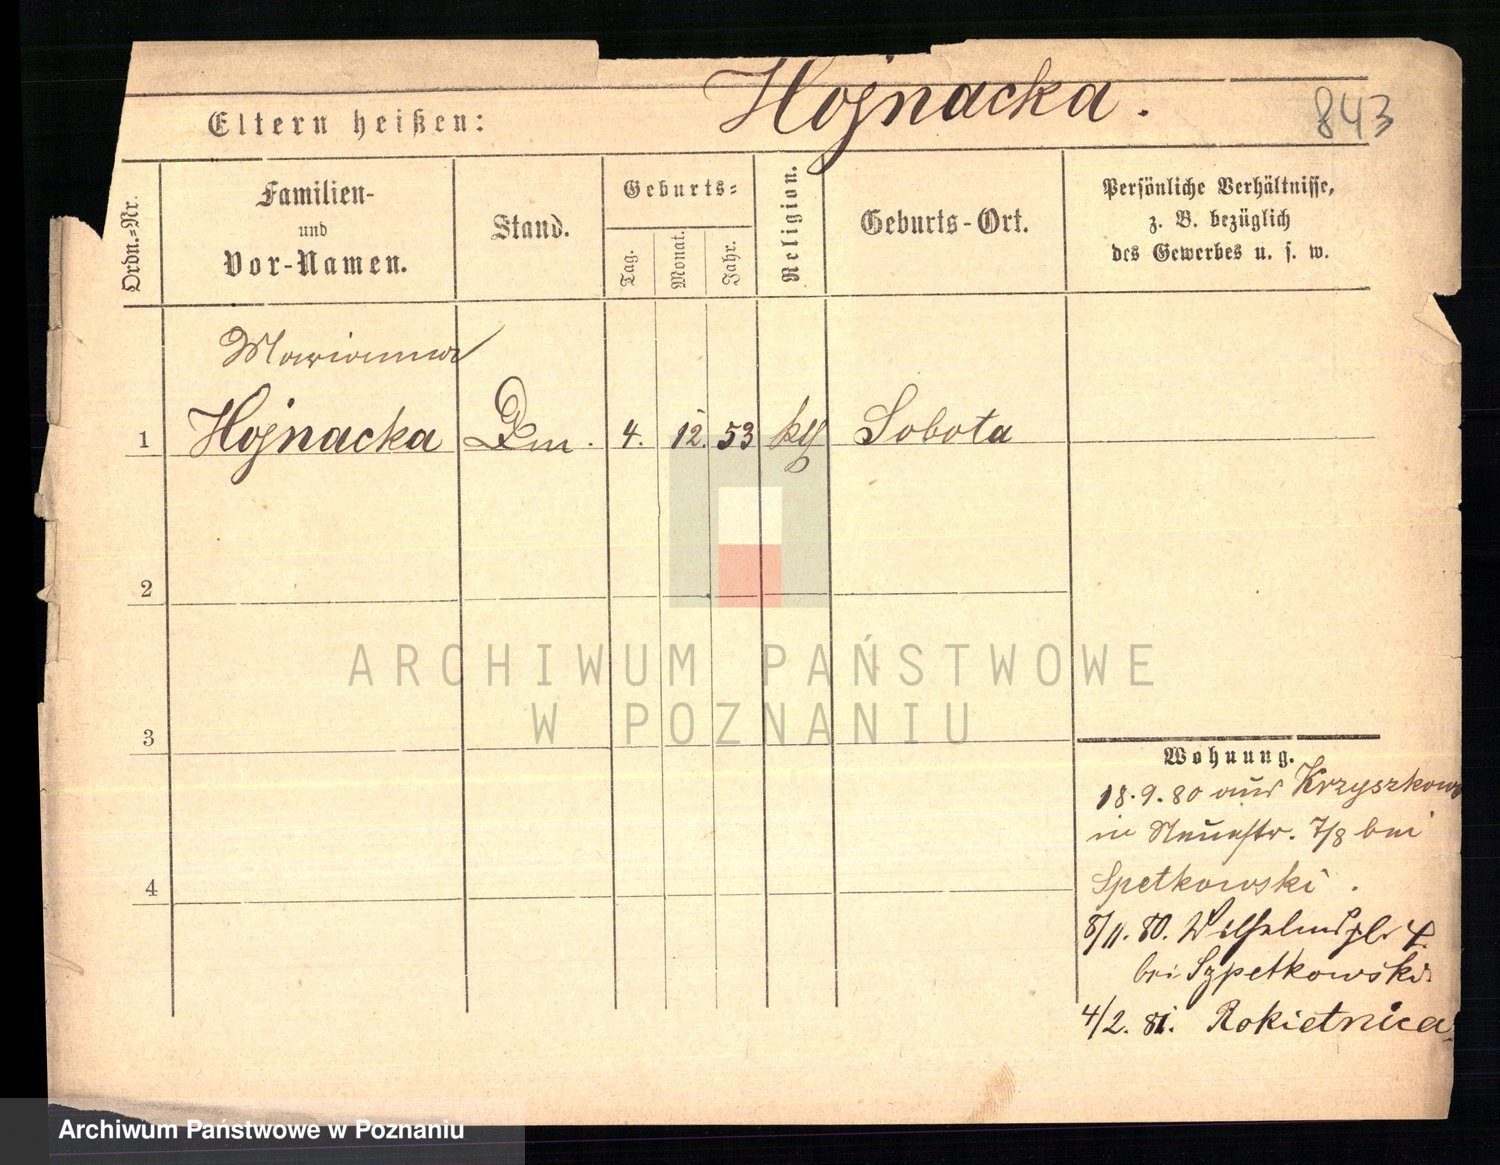 Hojnacka.
843
Eltern heißen:
Ordn.=Nr.
Familien-
und
Vor-Namen.
Stand.
Geburts=
Tag.
Monat.
Jahr.
Religion.
Geburts-Ort.
Persönliche Verhältnisse,
z. B. bezüglich
des Gewerbes u. s. w.
Marianna
1 Hojnacka 4. 12. 53 Sobota
2
3
4
Wohnung.
18.9.80 aus Krzyszkowo
in Neuestr. 7/8 bei
Spetkowski.
8/11. 80. Wilhelmspl. 4.
bei Szpetkowski
4/2. 81. Rokietnica
ARCHIWUM PAŃSTWOWE
W POZNANIU
Archiwum Państwowe w Poznaniu